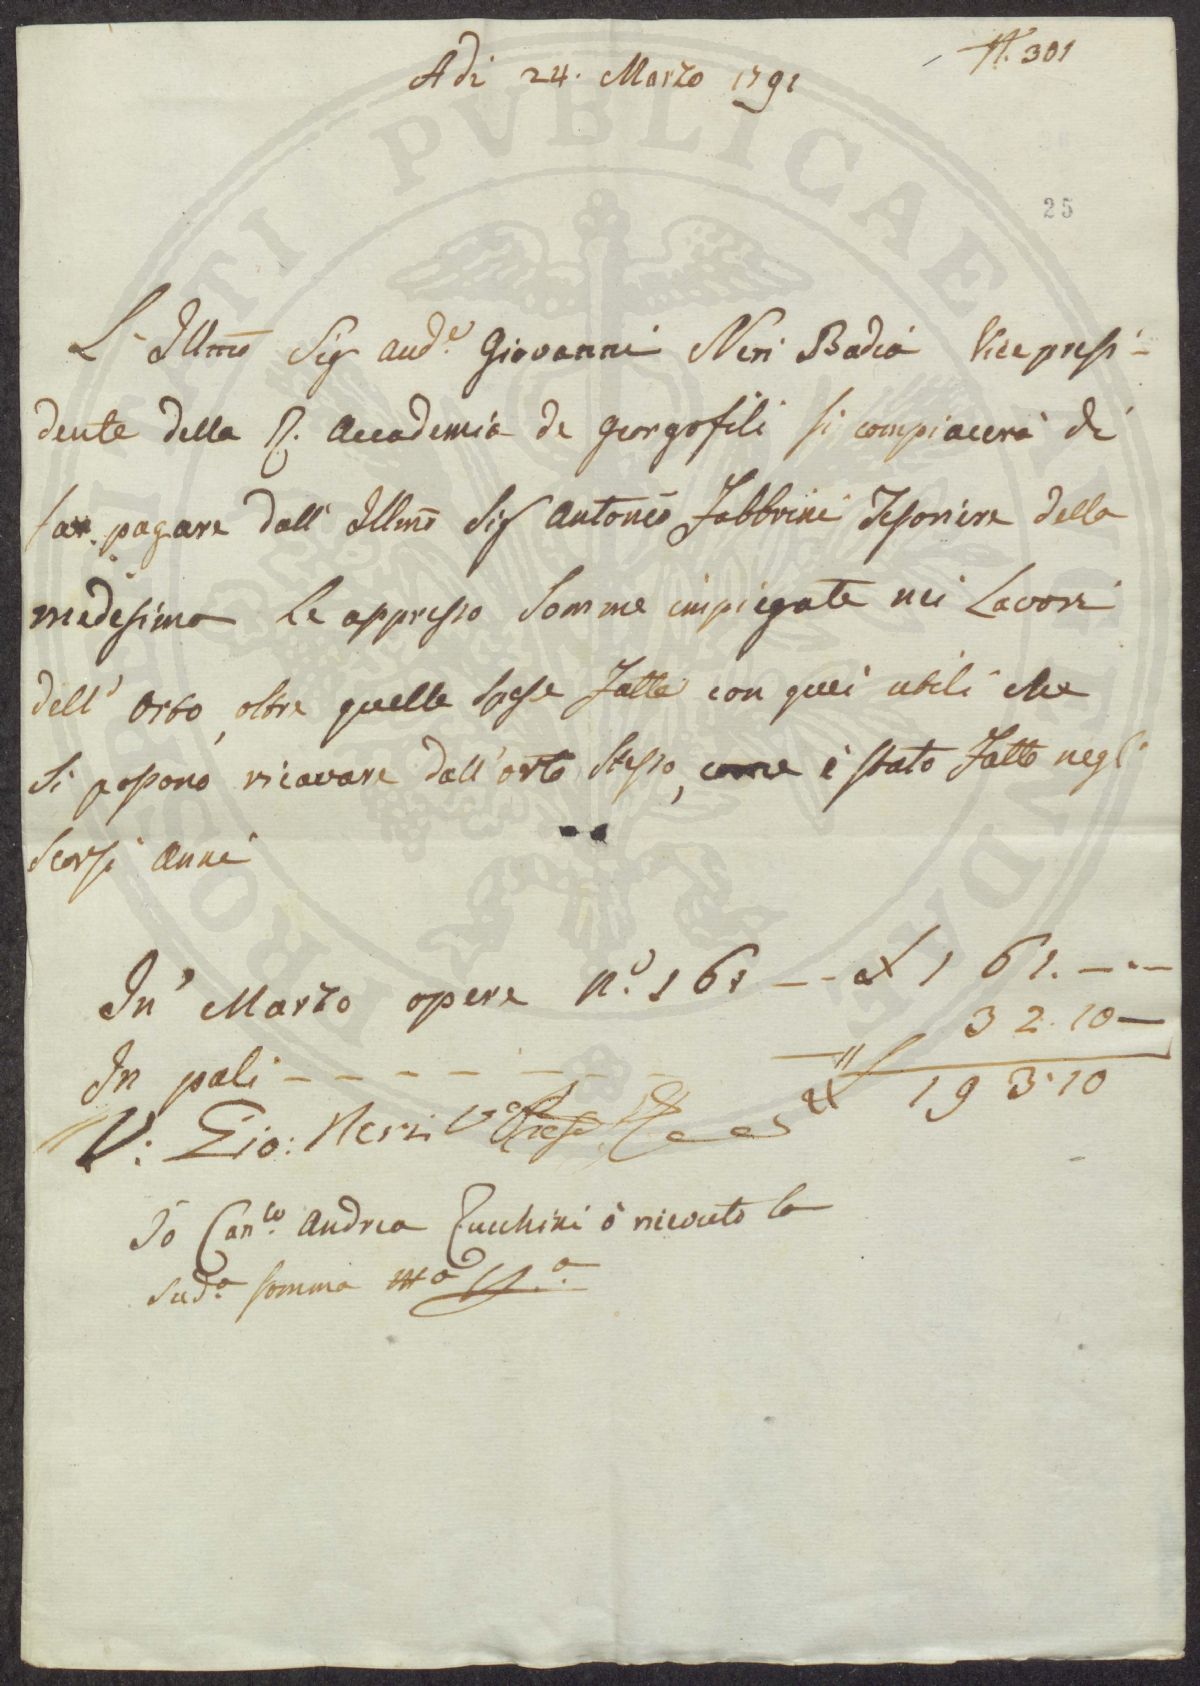 N. 301
Adi 24. Marzo 1791
25
L'Illmo Sig Aud.e Giovanni Neri Badia Vicepresi-
dente della R. Accademia de Georgofili si compiacerà di
far pagare dall' Illmo Sig Antonio Fabbrini Tesoriere della
medesima le appresso Somme impiegate nei Lavori
dell' Orto, oltre quelle spese fatte con quei utili che
si possono ricavare dall'orto stesso, come è stato fatto negli
scorsi anni
In Marzo opere n.o 161 -- £ 161. -.-
In pali - - - - - - - 32. 10 -
£ 193. 10
V: Gio: Neri V. Presid.
Io Can.co Andrea Zucchini ò ricevuto la
Sud.a somma mo pp.a
PROSPERITATI PUBLICAE AUGENDAE